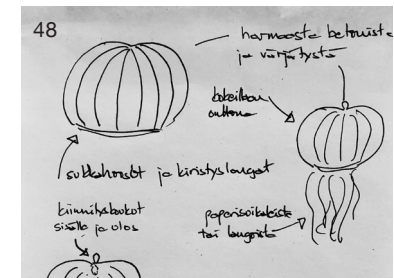 48
harmaasta betonista
ja värjätystä
kokeillaan
sukkahousut ja kiristyslangat
kiinnityskoukot
sisälle ja ulos
paperisoikaleista
tai langoista